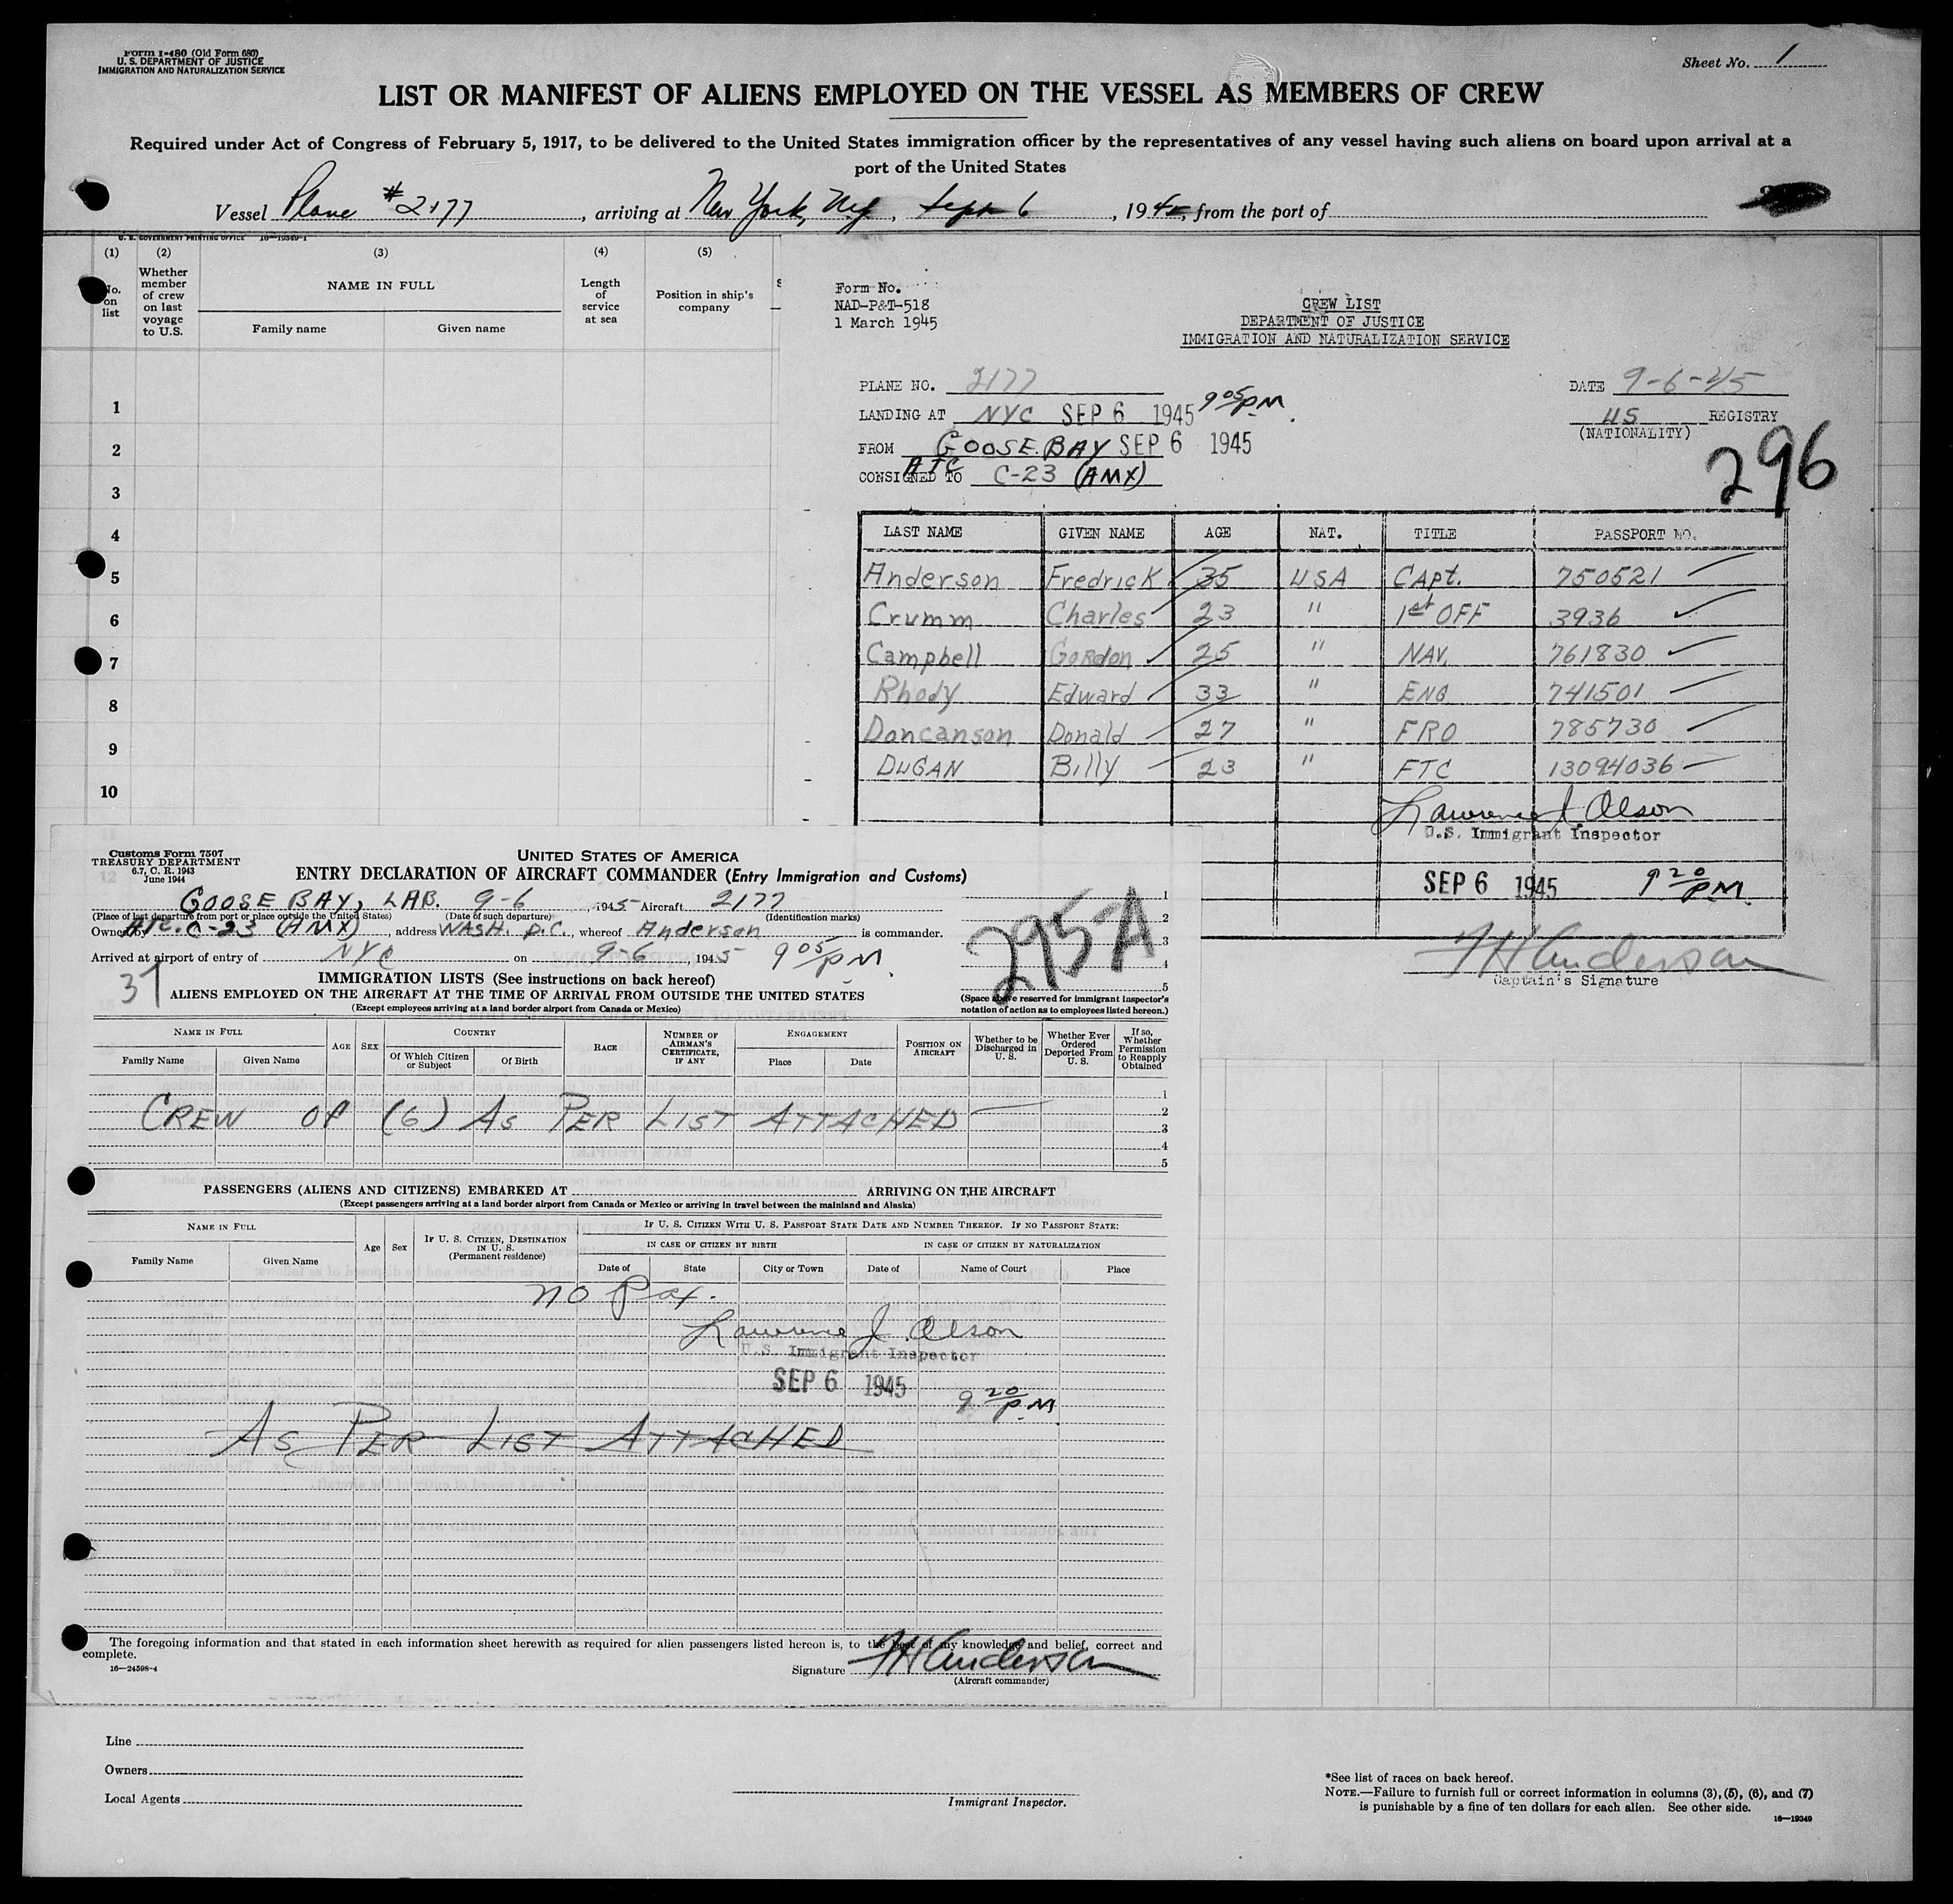 Form I-480 (Old Form 680)
U. S. DEPARTMENT OF JUSTICE
IMMIGRATION AND NATURALIZATION SERVICE
Sheet No. 1
LIST OR MANIFEST OF ALIENS EMPLOYED ON THE VESSEL AS MEMBERS OF CREW
Required under Act of Congress of February 5, 1917, to be delivered to the United States immigration officer by the representatives of any vessel having such aliens on board upon arrival at a
port of the United States
Vessel Plane #2177, arriving at New York, NY, Sept 6, 1945, from the port of
U. S. GOVERNMENT PRINTING OFFICE 16—19349-1
(1) (2) (3) (4) (5)
No. on list
Whether member of crew on last voyage to U.S.
NAME IN FULL
Family name Given name
Length of service at sea
Position in ship's company
1
2
3
4
5
6
7
8
9
10
Form No.
NAD-P&T-518
1 March 1945
CREW LIST
DEPARTMENT OF JUSTICE
IMMIGRATION AND NATURALIZATION SERVICE
PLANE NO. 2177
DATE 9-6-45
LANDING AT NYC SEP 6 1945 9 05 PM.
US REGISTRY
(NATIONALITY)
FROM GOOSE BAY SEP 6 1945
CONSIGNED TO ATC C-23 (AMX)
296
LAST NAME GIVEN NAME AGE NAT. TITLE PASSPORT NO.
Anderson Fredrick 35 USA CApt. 750521
Crumm Charles 23 " 1st OFF 3936
Campbell Gordon 25 " NAV. 761830
Rhody Edward 33 " ENG 741501
Doncanson Donald 27 " FRO 785730
DUGAN Billy 23 " FTC 13094036
Lawrence J. Olson
U.S. Immigrant Inspector
SEP 6 1945 9 20 PM.
F H Anderson
Captain's Signature
Customs Form 7507
TREASURY DEPARTMENT
6.7, C. R. 1943
June 1944
UNITED STATES OF AMERICA
ENTRY DECLARATION OF AIRCRAFT COMMANDER (Entry Immigration and Customs)
GOOSE BAY, LAB. 9-6, 1945 Aircraft 2177
(Place of last departure from port or place outside the United States) (Date of such departure) (Identification marks)
Owned by ATC. C-23 (AMX), address WASH. D.C., whereof Anderson is commander.
Arrived at airport of entry of NYC on 9-6, 1945 9 05 PM.
295-A
1
2
3
4
5
37
IMMIGRATION LISTS (See instructions on back hereof)
ALIENS EMPLOYED ON THE AIRCRAFT AT THE TIME OF ARRIVAL FROM OUTSIDE THE UNITED STATES
(Except employees arriving at a land border airport from Canada or Mexico)
(Space above reserved for immigrant inspector's
notation of action as to employees listed hereon.)
NAME IN FULL
Family Name Given Name
AGE SEX
COUNTRY
Of Which Citizen or Subject Of Birth
RACE
NUMBER OF AIRMAN'S CERTIFICATE, IF ANY
ENGAGEMENT
Place Date
POSITION ON AIRCRAFT
Whether to be Discharged in U. S.
Whether Ever Ordered Deported From U. S.
If so, Whether Permission to Reapply Obtained
1
2
3
4
5
CREW OF (6) AS PER LIST ATTACHED
PASSENGERS (ALIENS AND CITIZENS) EMBARKED AT ARRIVING ON THE AIRCRAFT
(Except passengers arriving at a land border airport from Canada or Mexico or arriving in travel between the mainland and Alaska)
NAME IN FULL
Family Name Given Name
Age Sex
IF U. S. CITIZEN, DESTINATION IN U. S.
(Permanent residence)
IF U. S. CITIZEN WITH U. S. PASSPORT STATE DATE AND NUMBER THEREOF. IF NO PASSPORT STATE:
IN CASE OF CITIZEN BY BIRTH IN CASE OF CITIZEN BY NATURALIZATION
Date of State City or Town Date of Name of Court Place
no Pax.
Lawrence J. Olson
U.S. Immigrant Inspector
SEP 6 1945
9 20 P.M.
AS PER LIST ATTACHED
The foregoing information and that stated in each information sheet herewith as required for alien passengers listed hereon is, to the best of my knowledge and belief, correct and
complete.
16—24598-4
Signature F H Anderson
(Aircraft commander)
Line
Owners
Local Agents
Immigrant Inspector.
*See list of races on back hereof.
NOTE.—Failure to furnish full or correct information in columns (3), (5), (6), and (7)
is punishable by a fine of ten dollars for each alien. See other side.
16—19349